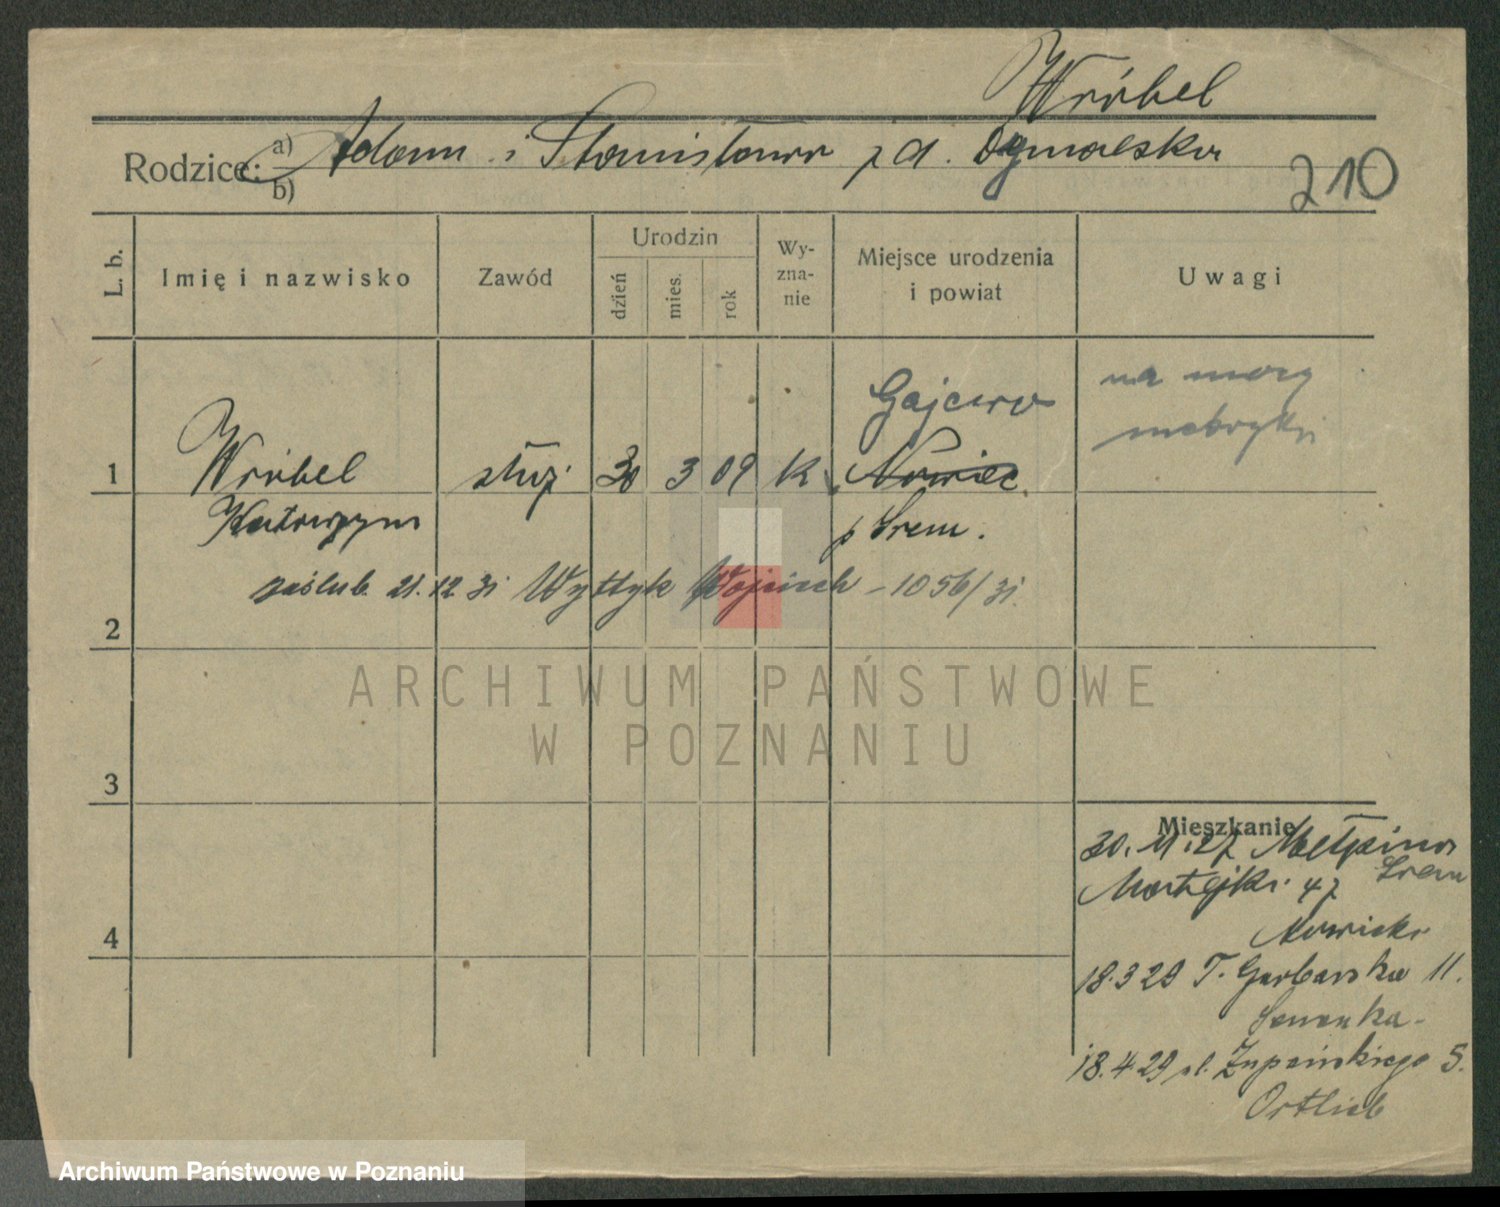 Wróbel
Rodzice: a) Adam i Stanisława z d.
b)
210
L. b.
Imię i nazwisko
Zawód
Urodzin
dzień
mies.
rok
Wy-
zna-
nie
Miejsce urodzenia
i powiat
Uwagi
na mocy
metryki
Gajewo
1 Wróbel służ. 30 3 09 k Nowiec
Katarzyna p Śrem.
zaślub. 21.12 31 Wyttyk Wojciech – 1056/31.
2
ARCHIWUM PAŃSTWOWE
W POZNANIU
3
Mieszkanie
30.11.27 Mełpino
Śrem
Matejki 47
Nowicki
4
18.3 29 T. Garbarska 11.
18.4 29 ul. Żupańskiego 5.
Ortlieb
Archiwum Państwowe w Poznaniu